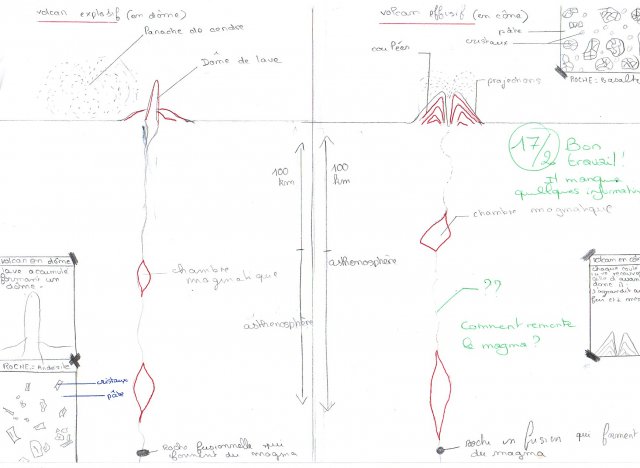 volcan explosif (en dôme)
Panache de cendre
Dôme de lave
100
km
chambre
magmatique
asthénosphère
volcan en dôme
lave acumulé
formant un
dôme.
ROCHE: Andésite
cristaux
pâte
Roche fusionnelle qui
forment du magma
volcan effusif (en cône)
coulées
projections
pâte
cristaux
ROCHE: Basalte
17/20
Bon
travail!
Il manque
quelques informations
100
km
chambre magmatique
asthénosphère
??
Comment remonte
le magma?
volcan en cône
chaque coulé
Roche en fusion qui forment
du magma